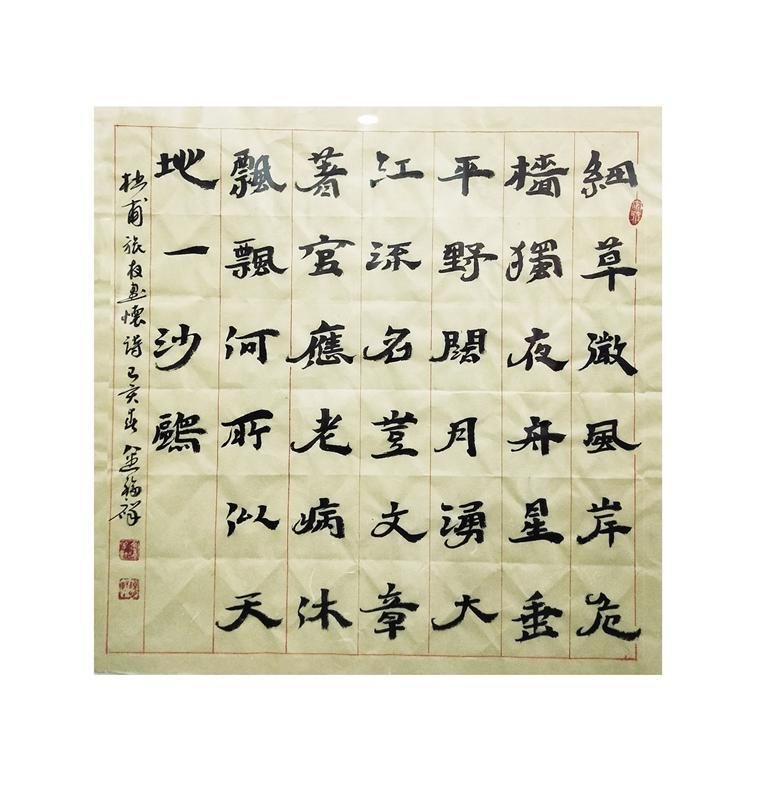 細草微風岸危
檣獨夜舟星垂
平野闊月湧大
江流名豈文章
著官應老病休
飄飄何所似天
地一沙鷗
杜甫旅夜書懷詩己亥春